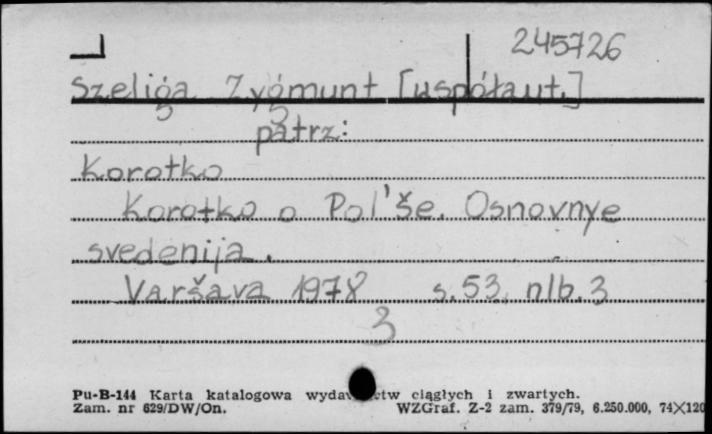 245726
Szeliga Zygmunt [współaut.]
patrz:
Korotko
Korotko o Pol'še. Osnovnye
svedenija.
Varšava 1978 s.53, nlb.3
3
Pu-B-144 Karta katalogowa ciągłych i zwartych.
Zam. nr 629/DW/On. WZGraf. Z-2 zam. 379/79, 6.250.000, 74×120